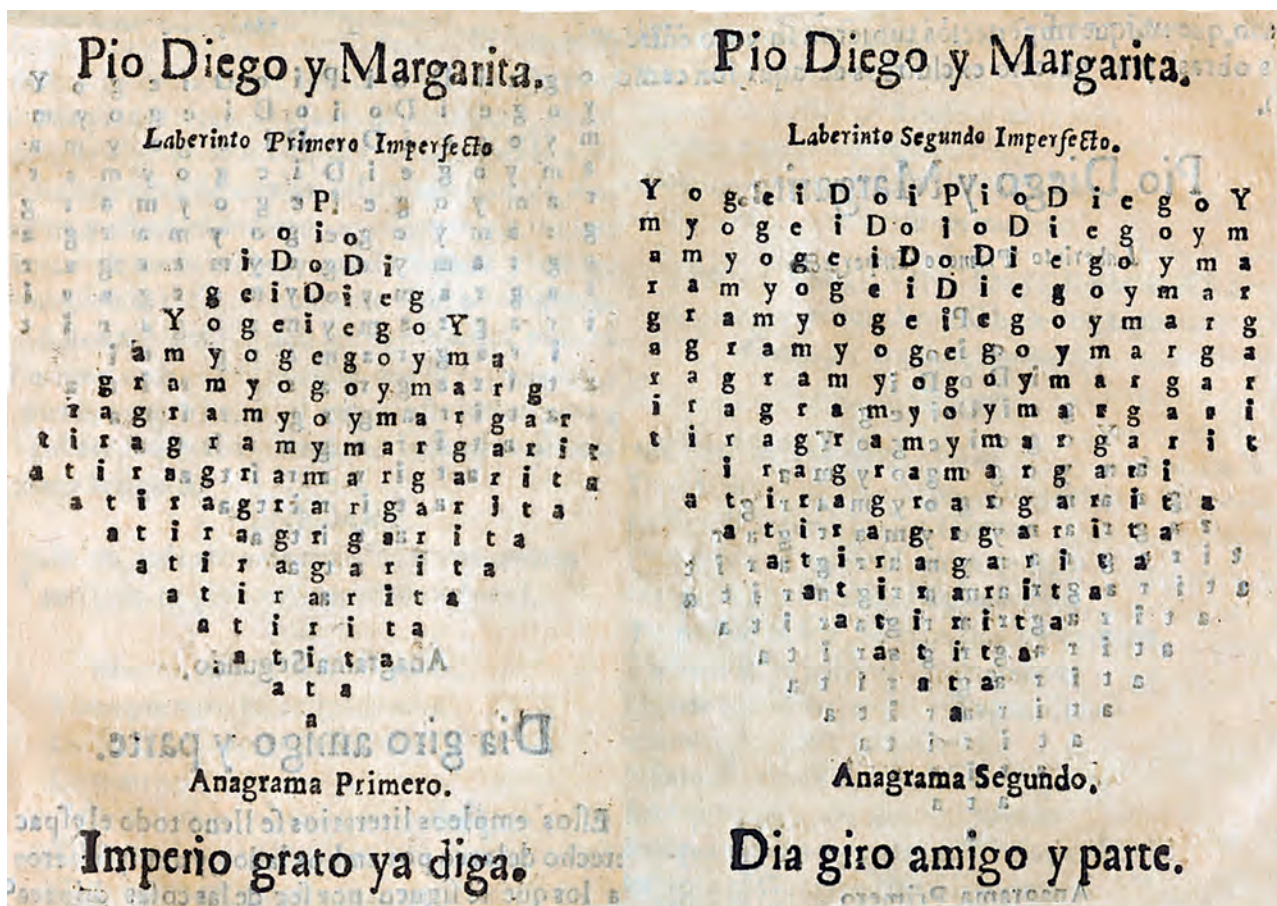 Pio Diego y Margarita.
Laberinto Primero Imperfecto
P
o i o
i D o D i
g e i D i e g
Y o g e i e g o Y
a m y o g e g o y m a
g r a m y o g o y m a r g
r a g r a m y o y m a r g a r
t i r a g r a m y m a r g a r i t
a t i r a g r a m a r g a r i t a
a t i r a g r a r g a r i t a
a t i r a g r g a r i t a
a t i r a g a r i t a
a t i r a r i t a
a t i r i t a
a t i t a
a t a
a
Anagrama Primero.
Imperio grato ya diga.
Pio Diego y Margarita.
Laberinto Segundo Imperfecto.
Y o g e i D o i P i o D i e g o Y
m y o g e i D o i o D i e g o y m
a m y o g e i D o D i e g o y m a
r a m y o g e i D i e g o y m a r
g r a m y o g e i e g o y m a r g
a g r a m y o g e g o y m a r g a
r a g r a m y o g o y m a r g a r
i r a g r a m y o y m a r g a r i
t i r a g r a m y m a r g a r i t
i r a g r a m a r g a r i
a t i r a g r a r g a r i t a
a t i r a g r g a r i t a
a t i r a g a r i t a
a t i r a r i t a
a t i r i t a
a t i t a
a t a
a
Anagrama Segundo.
Dia giro amigo y parte.